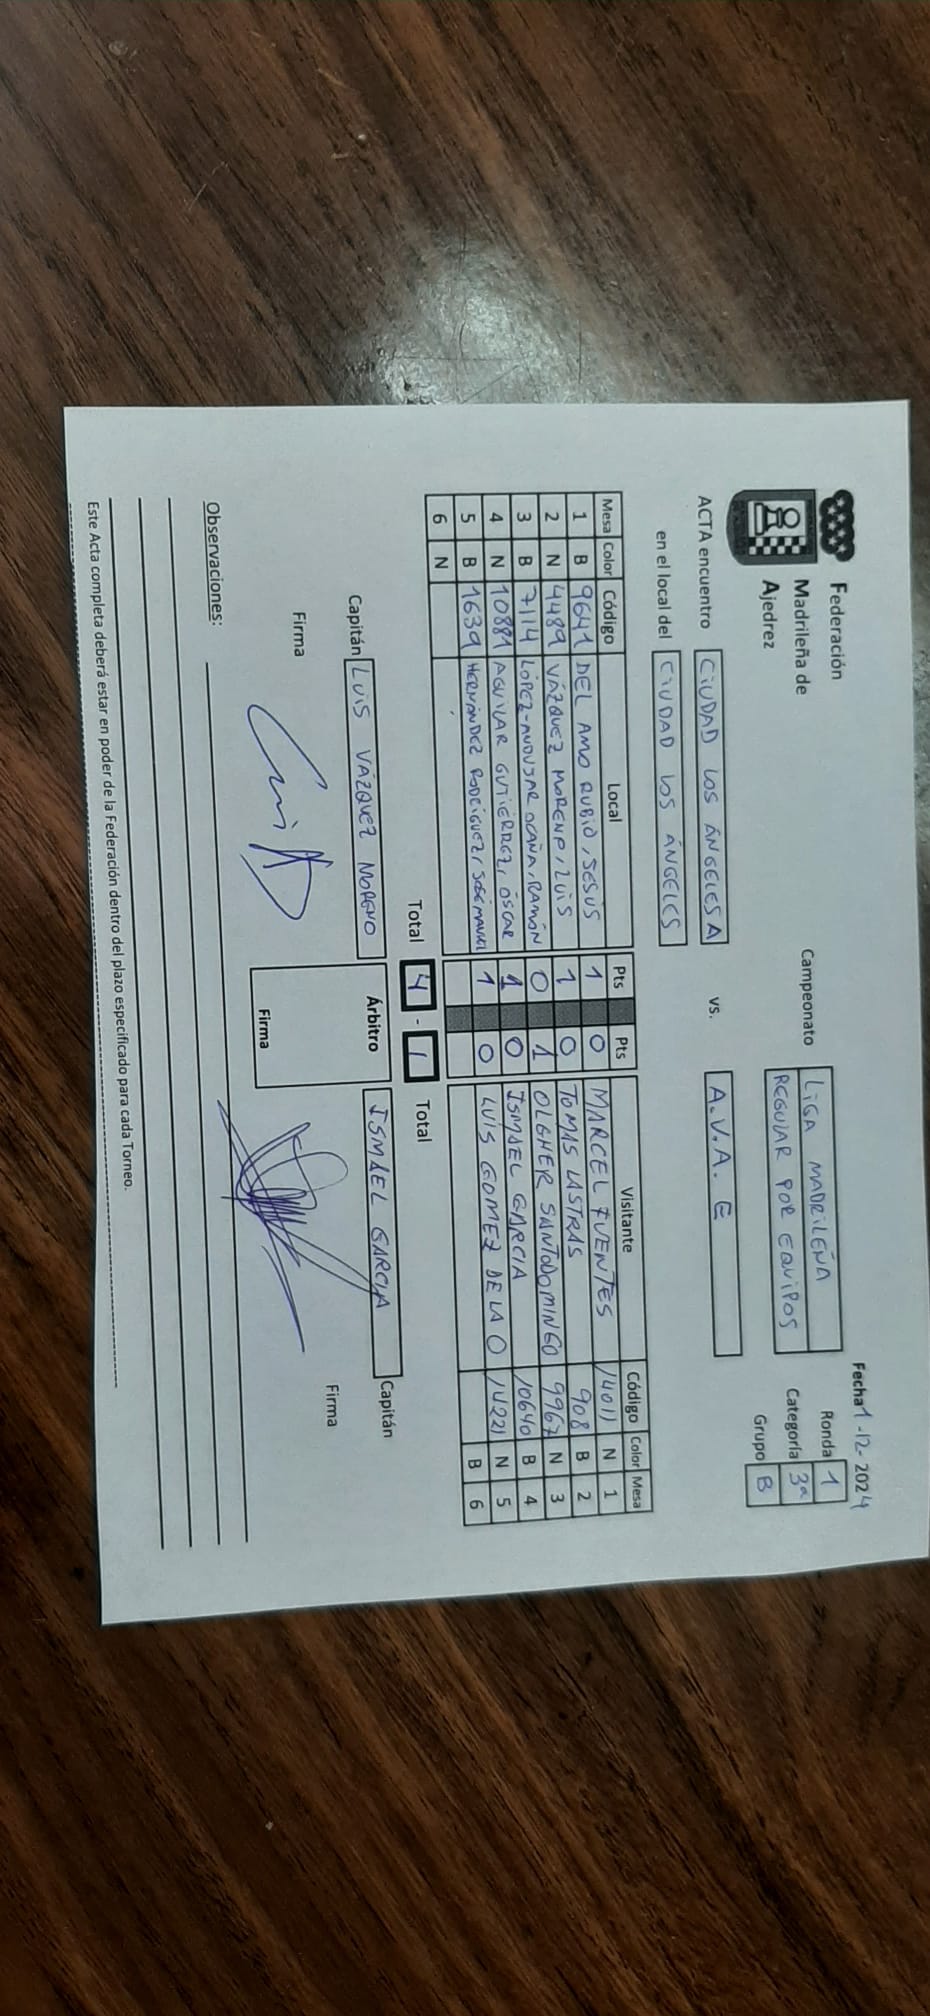 Federación
Madrileña de
Ajedrez
Campeonato LIGA MADRILEÑA
REGULAR POR EQUIPOS
Fecha 1-12-2024
Ronda 1
Categoría 3a
Grupo B
ACTA encuentro CIUDAD LOS ÁNGELES A vs. A.V.A. E
en el local del CIUDAD LOS ÁNGELES
Mesa Color Código Local Pts Pts Visitante Código Color Mesa
1 B 9641 DEL AMO RUBIO, JESUS 1 0 MARCEL FUENTES 14011 N 1
2 N 4489 VÁZQUEZ MORENO, LUIS 1 0 TOMAS LASTRAS 908 B 2
3 B 7114 LÓPEZ-ANDUJAR OCAÑA, RAMÓN 0 1 OLGHER SANTODOMINGO 9967 N 3
4 N 10881 AGUILAR GUTIÉRREZ, ÓSCAR 1 0 ISMAEL GARCIA 10640 B 4
5 B 1639 HERNÁNDEZ RODRÍGUEZ, JOSÉ MANUEL 1 0 LUIS GOMEZ DE LA O 14221 N 5
6 N B 6
Total 4 - 1 Total
Capitán LUIS VÁZQUEZ MORENO Árbitro ISMAEL GARCIA Capitán
Firma Firma Firma
Observaciones:
Este Acta completa deberá estar en poder de la Federación dentro del plazo especificado para cada Torneo.